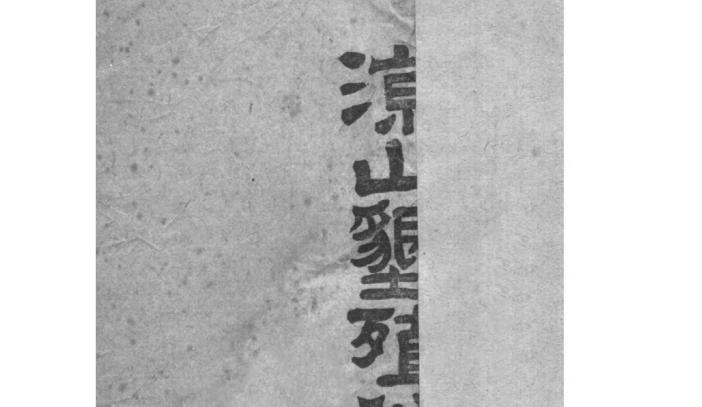 涼山墾殖